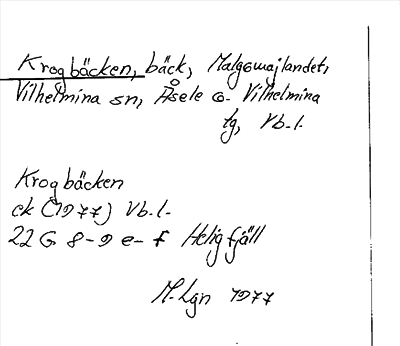 Krogbäcken, bäck, Malgomajlandet,
Vilhelmina sn, Åsele o. Vilhelmina
tg, Vb.l.
Krogbäcken
ek (1977) Vb.l.
22 G 8-9 e-f Heligfjäll
M. Lgn 1977